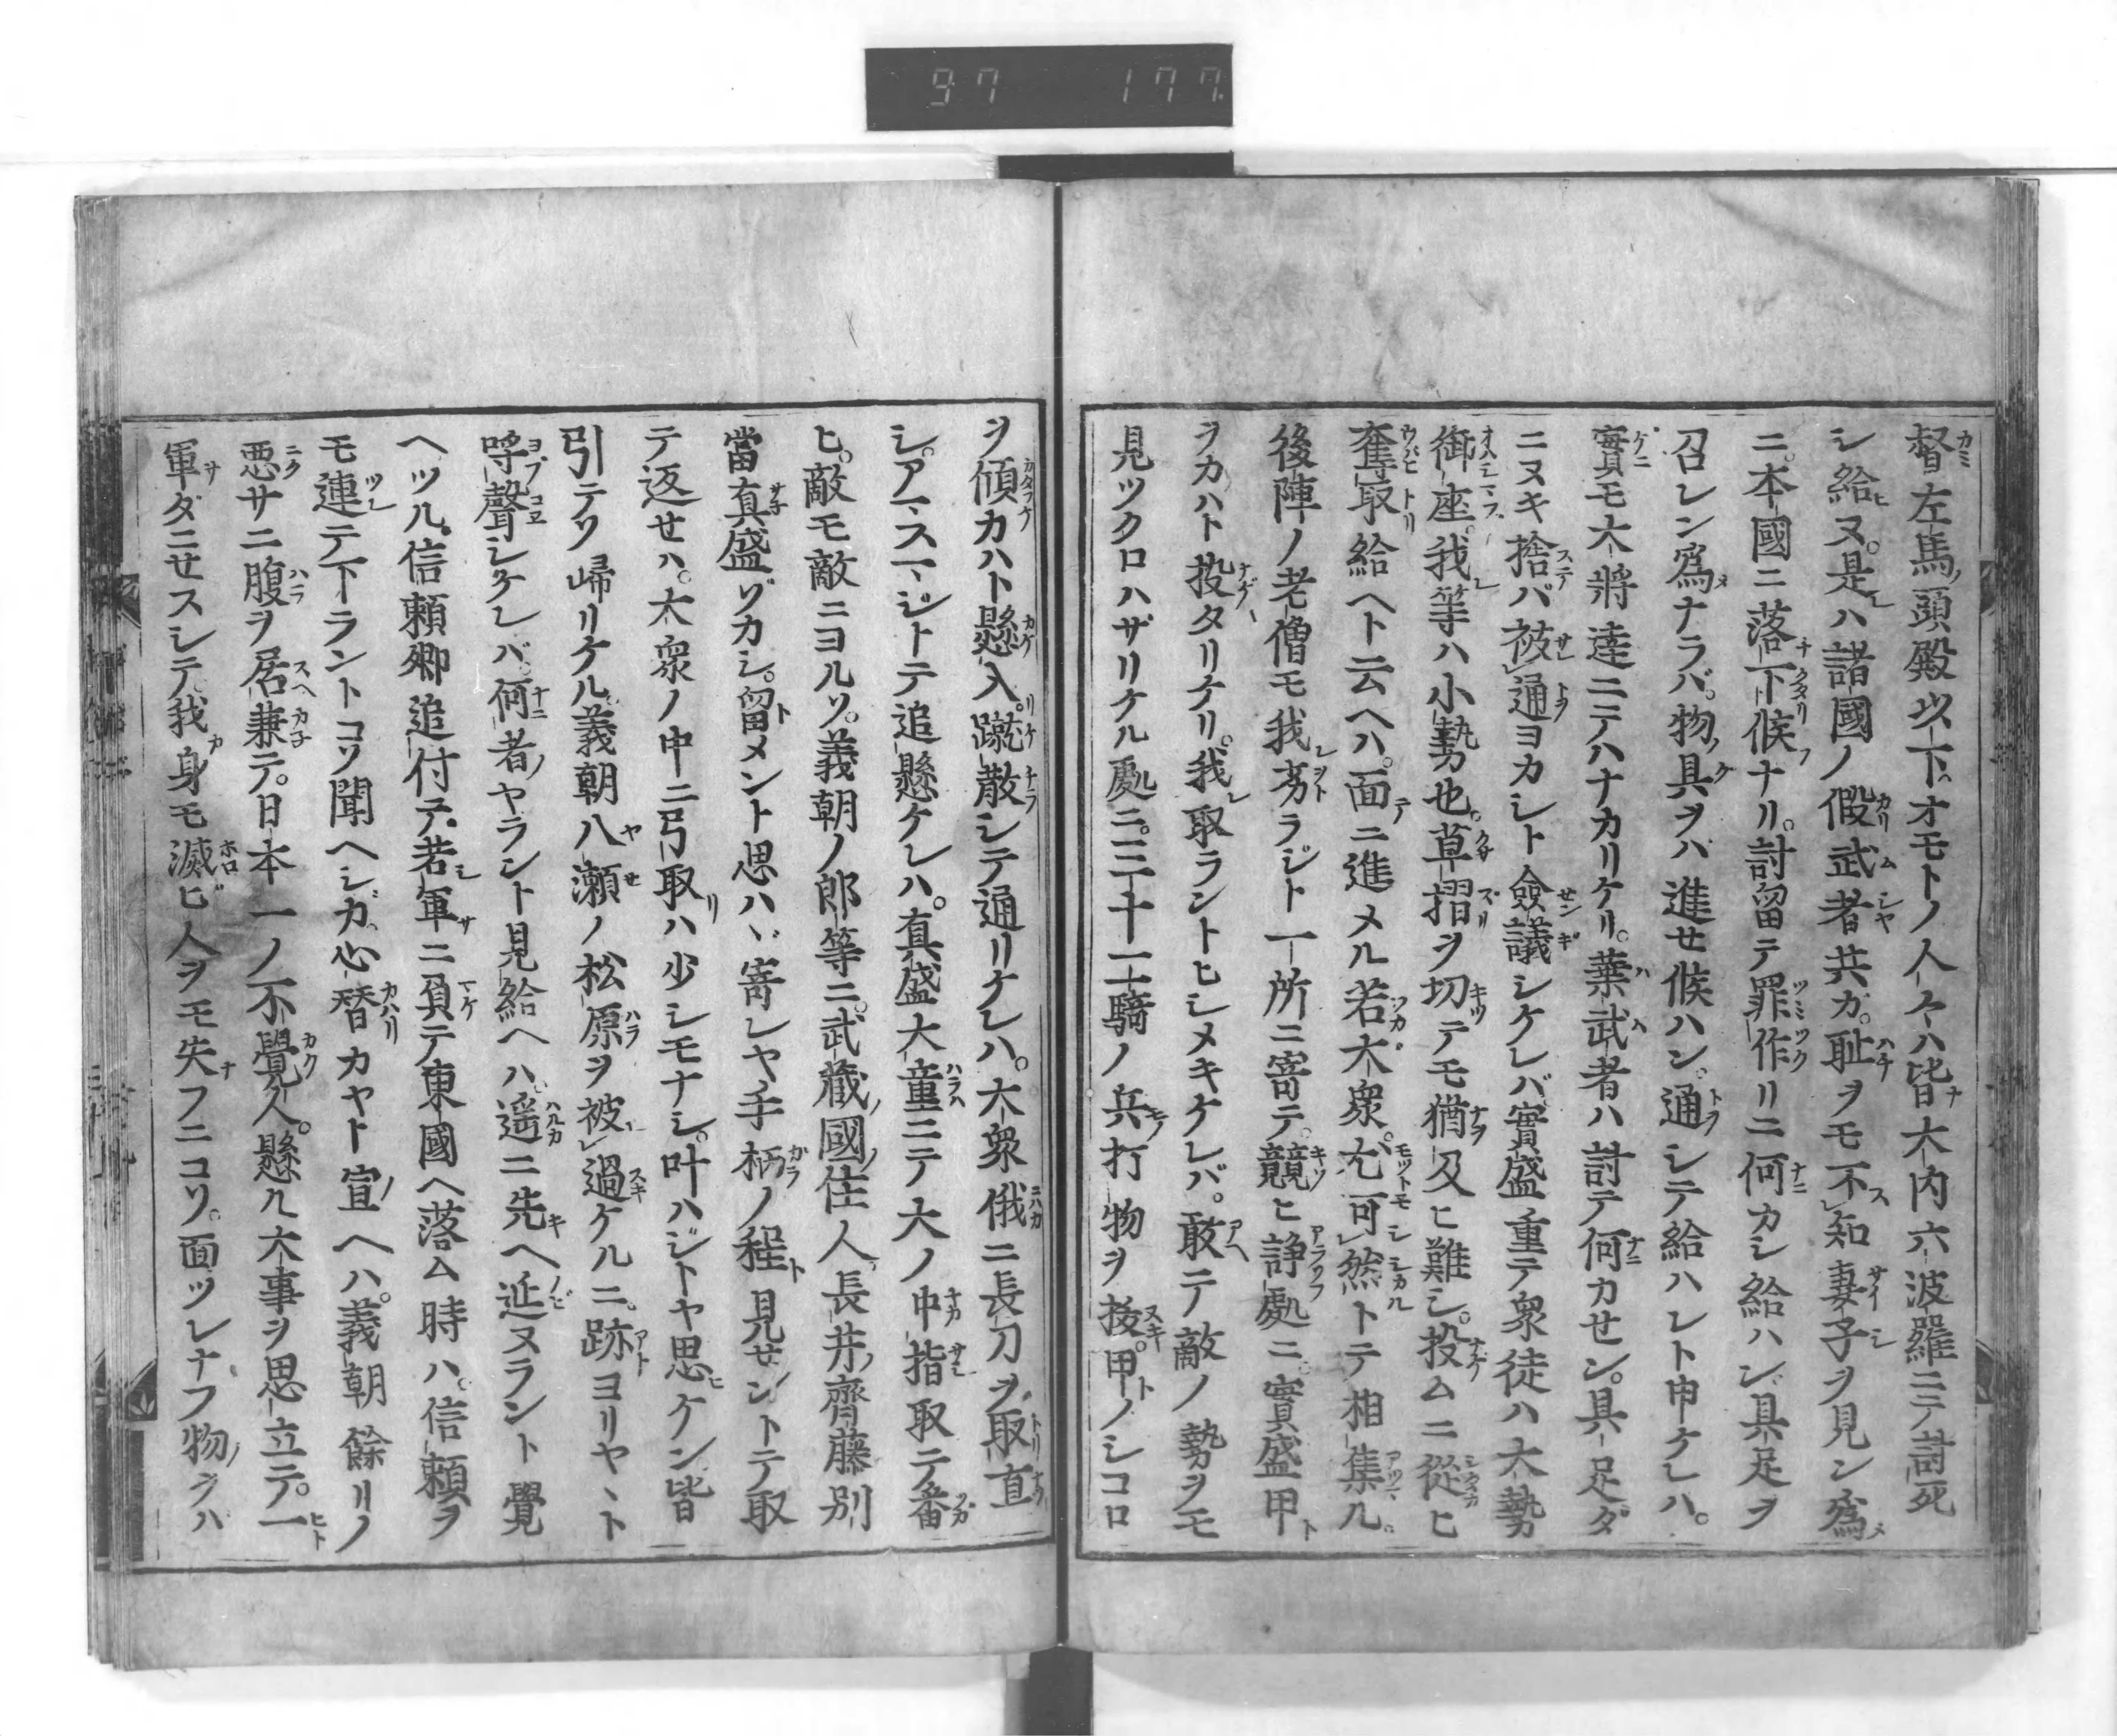 97 177
督左馬頭殿以下オモトノ人々ハ皆大内六波羅ニテ討死
シ給ヌ。是ハ諸國ノ假武者共カ。耻ヲモ不知妻子ヲ見ン爲
ニ。本國ニ落下候ナリ。討留テ罪作リニ何カシ給ハン。具足ヲ
召レン爲ナラバ。物具ヲハ進せ候ハン。通シテ給ハレト申ケレハ。
實モ大將達ニテハナカリケリ。葉武者ハ討テ何カせン。具足ダ
ニヌキ捨バ被通ヨカシト僉議シケレバ實盛重テ衆徒ハ大勢
御座。我等ハ小勢也。草摺ヲ切テモ猶及ヒ難シ。投ムニ從ヒ
奪取給ヘト云ヘハ。面ニ進メル若大衆。尤可然トテ相集ル。
後陣ノ老僧モ我劣ラジト一所ニ寄テ。競ヒ諍處ニ。實盛甲
ヲカハト投タリケリ。我取ラントヒシメキケレバ。敢テ敵ノ勢ヲモ
見ツクロハザリケル處ニ。三十二騎ノ兵打物ヲ抜。甲ノシコロ
ヲ傾カハト懸入。蹴散シテ通リケレハ。大衆俄ニ長刀ヲ取直
シ。アマスマジトテ追懸ケレハ。真盛大童ニテ大ノ中指取テ番
ヒ。敵モ敵ニヨルソ。義朝ノ郎等ニ。武藏國住人長井齊藤別
當真盛ゾカシ。留メント思ハヾ寄レヤ手柄ノ程見せントテ取
テ返せハ。大衆ノ中ニ弓取ハ少シモナシ。叶ハジトヤ思ケン皆
引テソ歸リケル義朝八瀬ノ松原ヲ被過ケルニ。跡ヨリヤヽト
呼聲シケレバ。何者ヤラント見給ヘハ。遥ニ先ヘ延ヌラント覺
ヘツル。信頼卿追付テ。若軍ニ負テ東國ヘ落ム時ハ。信頼ヲ
モ連テ下ラントコソ聞ヘシガ。心替カヤト宣ヘハ。義朝餘リノ
悪サニ腹ヲ居兼テ。日本一ノ不覺人。懸ル大事ヲ思立テ。一
軍ダニせスシテ。我身モ滅ビ人ヲモ失フニコソ。面ツレナフ物ヲハ